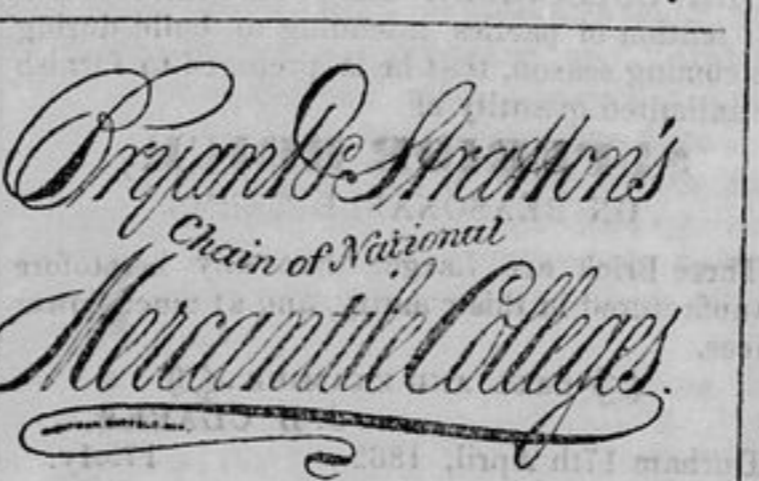 Bryant & Stratton's
Chain of National
Mercantile Colleges.